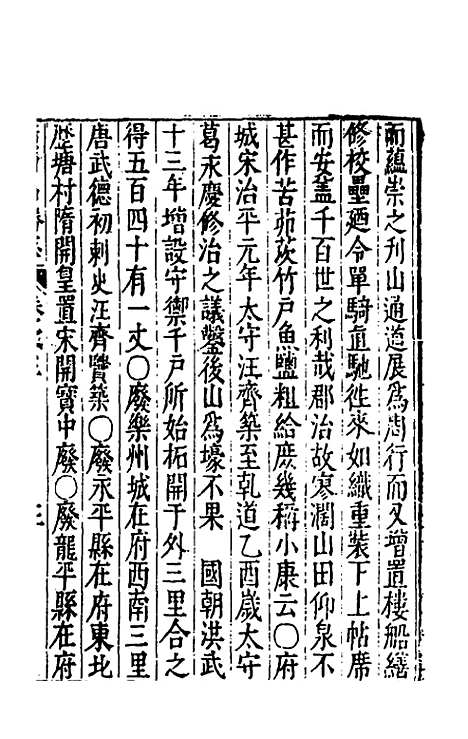 而蘊崇之刋山通道展爲周行而又增置樓船繕
修校壘廼令單騎直馳徃來如織重装下上帖席
而安盖千百世之利哉郡治故寥濶山田仰泉不
甚作苦茆茨竹戶魚鹽粗給庶幾稱小康云〇府
城宋治平元年太守汪齊築至乹道乙酉歲太守
葛永慶修治之議鑿後山爲壕不果 國朝洪武
十三年增設守禦千戶所始拓開于外三里合之
得五百四十有一丈〇廢樂州城在府西南三里
唐武德初刺史汪齊賢築〇廢永平縣在府東北
歷塘村隋開皇置宋開寳中廢〇廢龍平縣在府